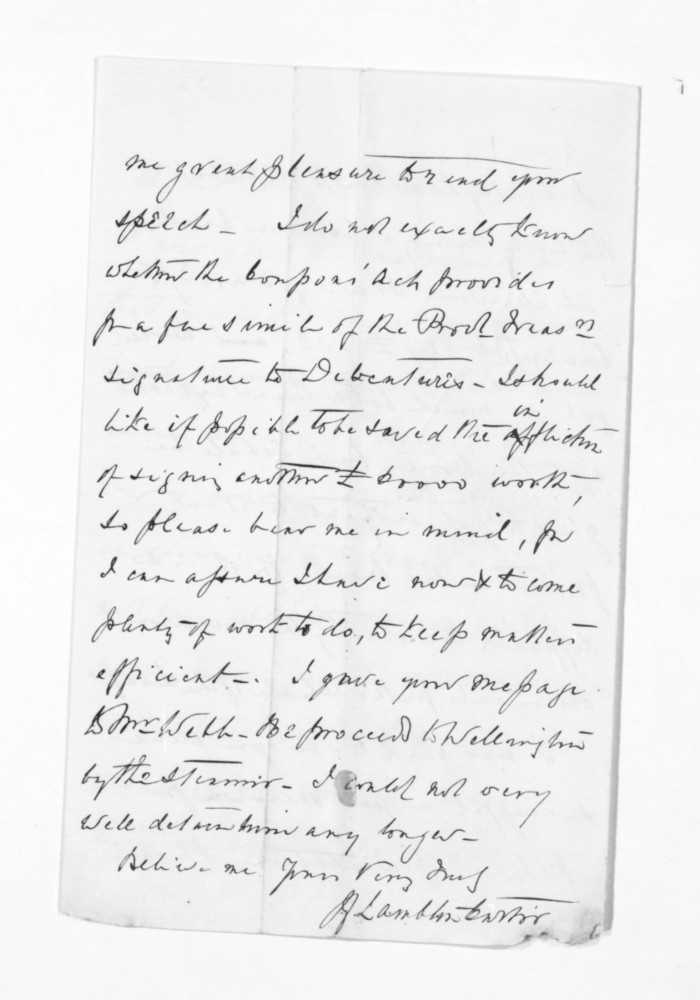 me great pleasure to read your
speech - I do not exactly know
whether the Coupons' Act provides
for a fac simile of the Provl. Treasrs
signature to Debentures - I should
like if possible to be saved the in affliction
of signing another £ 60000 worth,
so please bear me in mind, for
I can assure I have now & to come
plenty of work to do, to keep matters
efficient -. I gave your message
to Mr Webb - He proceeds to Wellington
by the Steamer - I could not very
well detain him any longer -
Believe me Yours Very Truly